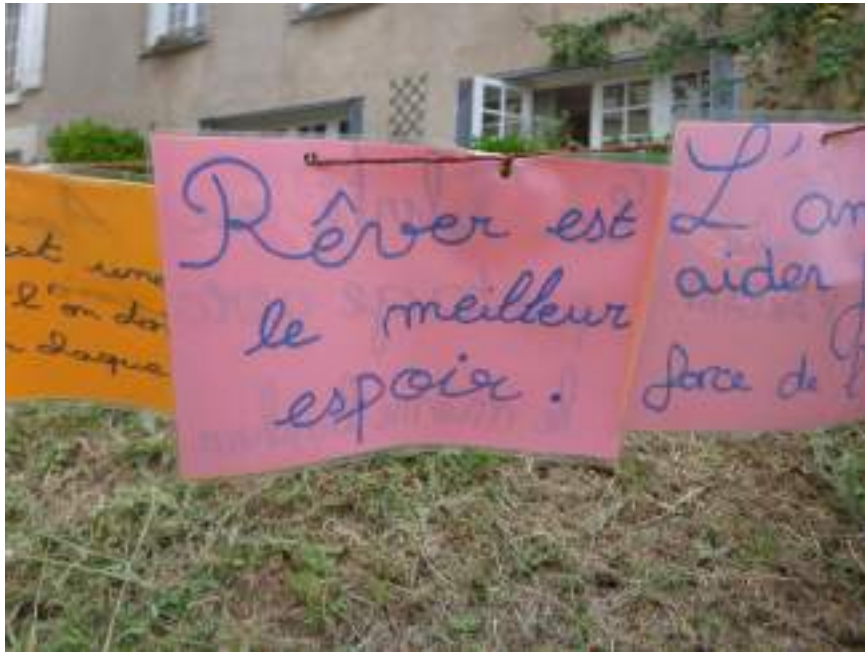 une
l'on
chaque
Rêver est
le meilleur
espoir.
L'
aider
force de